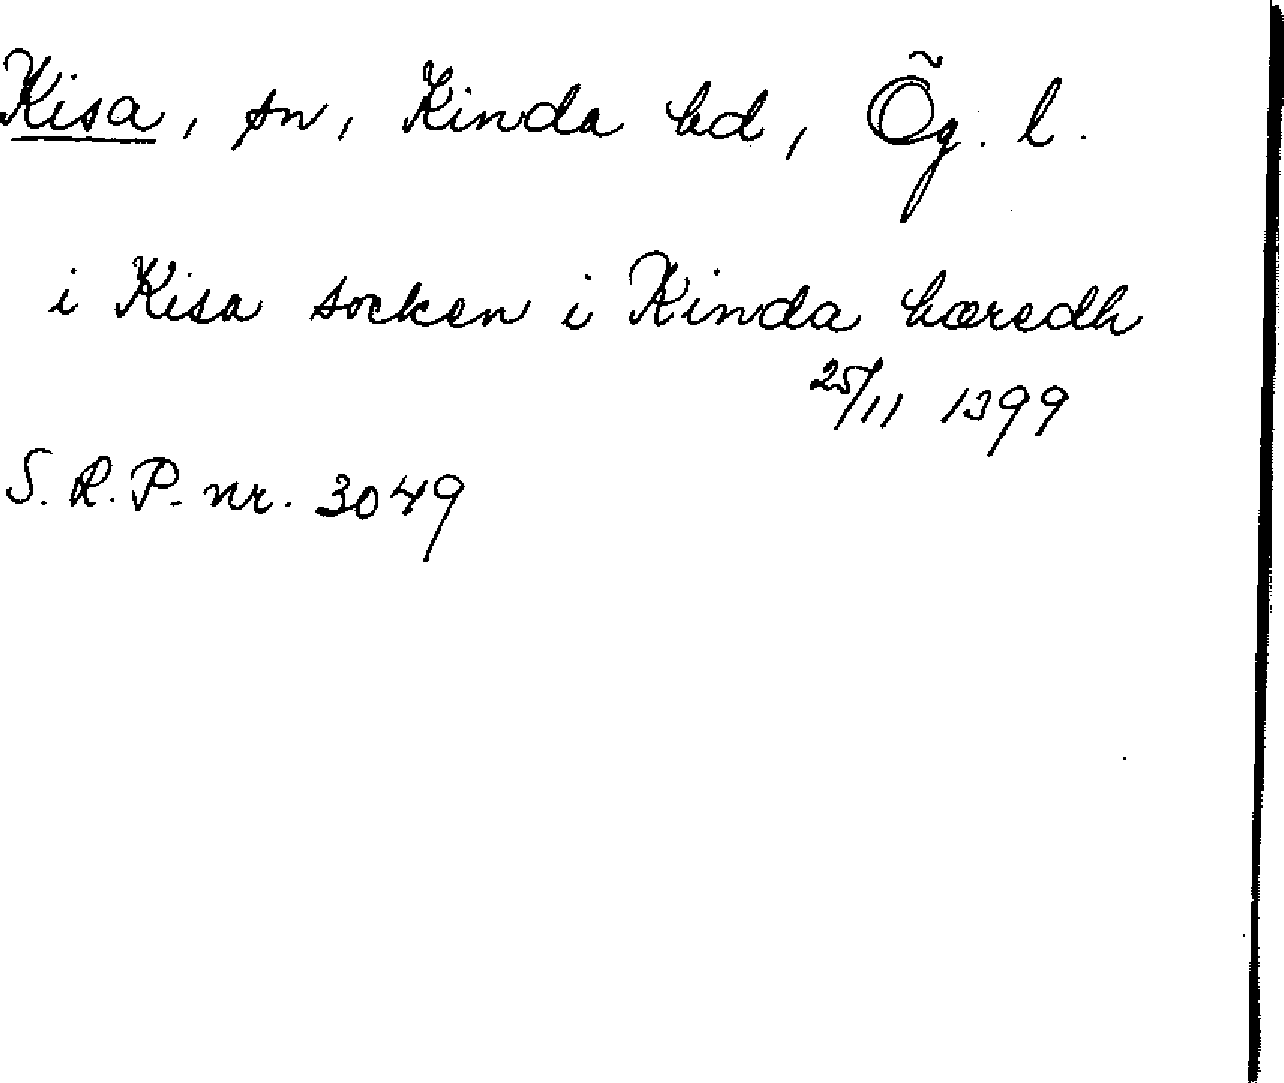 Kisa, sn, Kinda hd, Ög. l.
i Kisa socken i Kinda hæredh
25/11 1399
S. R. P. nr. 3049